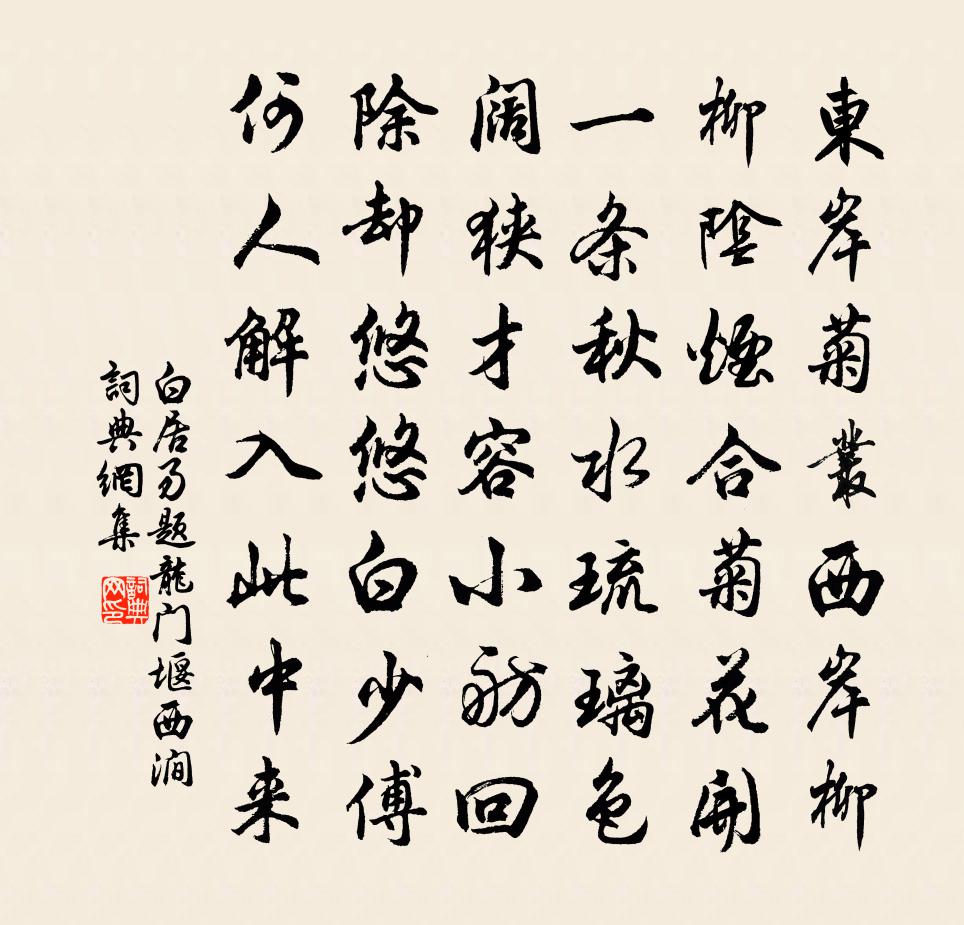 東岸菊叢西岸柳
柳陰煙合菊花開
一条秋水琉璃色
阔狭才容小舫回
除却悠悠白少傅
何人解入此中来
白居易题龍门堰西澗
詞典網集
詞典网印